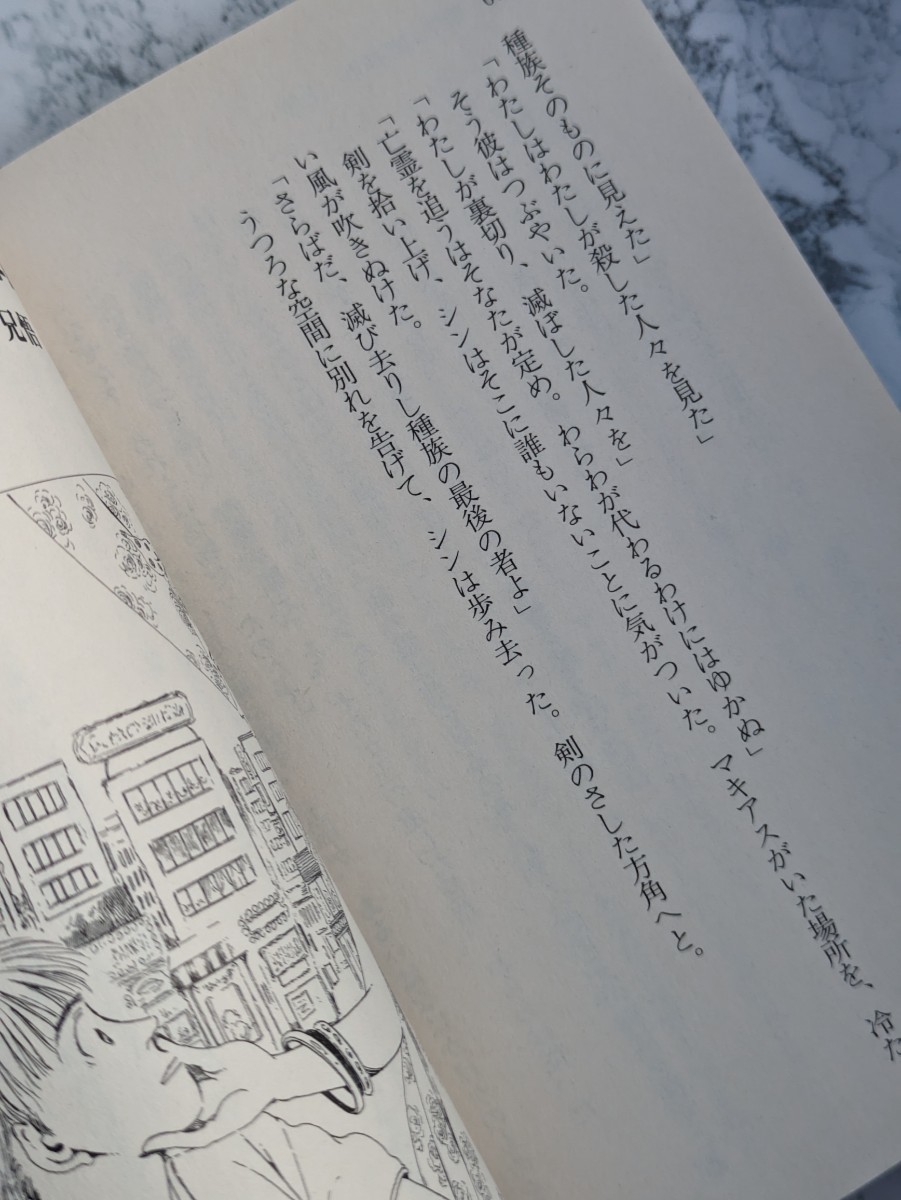 種族そのものに見えた」
「わたしはわたしが殺した人々を見た」
そう彼はつぶやいた。
「わたしが裏切り、滅ぼした人々を」
「亡霊を追うはそなたが定め。わらわが代わるわけにはゆかぬ」
剣を拾い上げ、シンはそこに誰もいないことに気がついた。マキアスがいた場所を、冷た
い風が吹きぬけた。
「さらばだ、滅び去りし種族の最後の者よ」
うつろな空間に別れを告げて、シンは歩み去った。剣のさした方角へと。